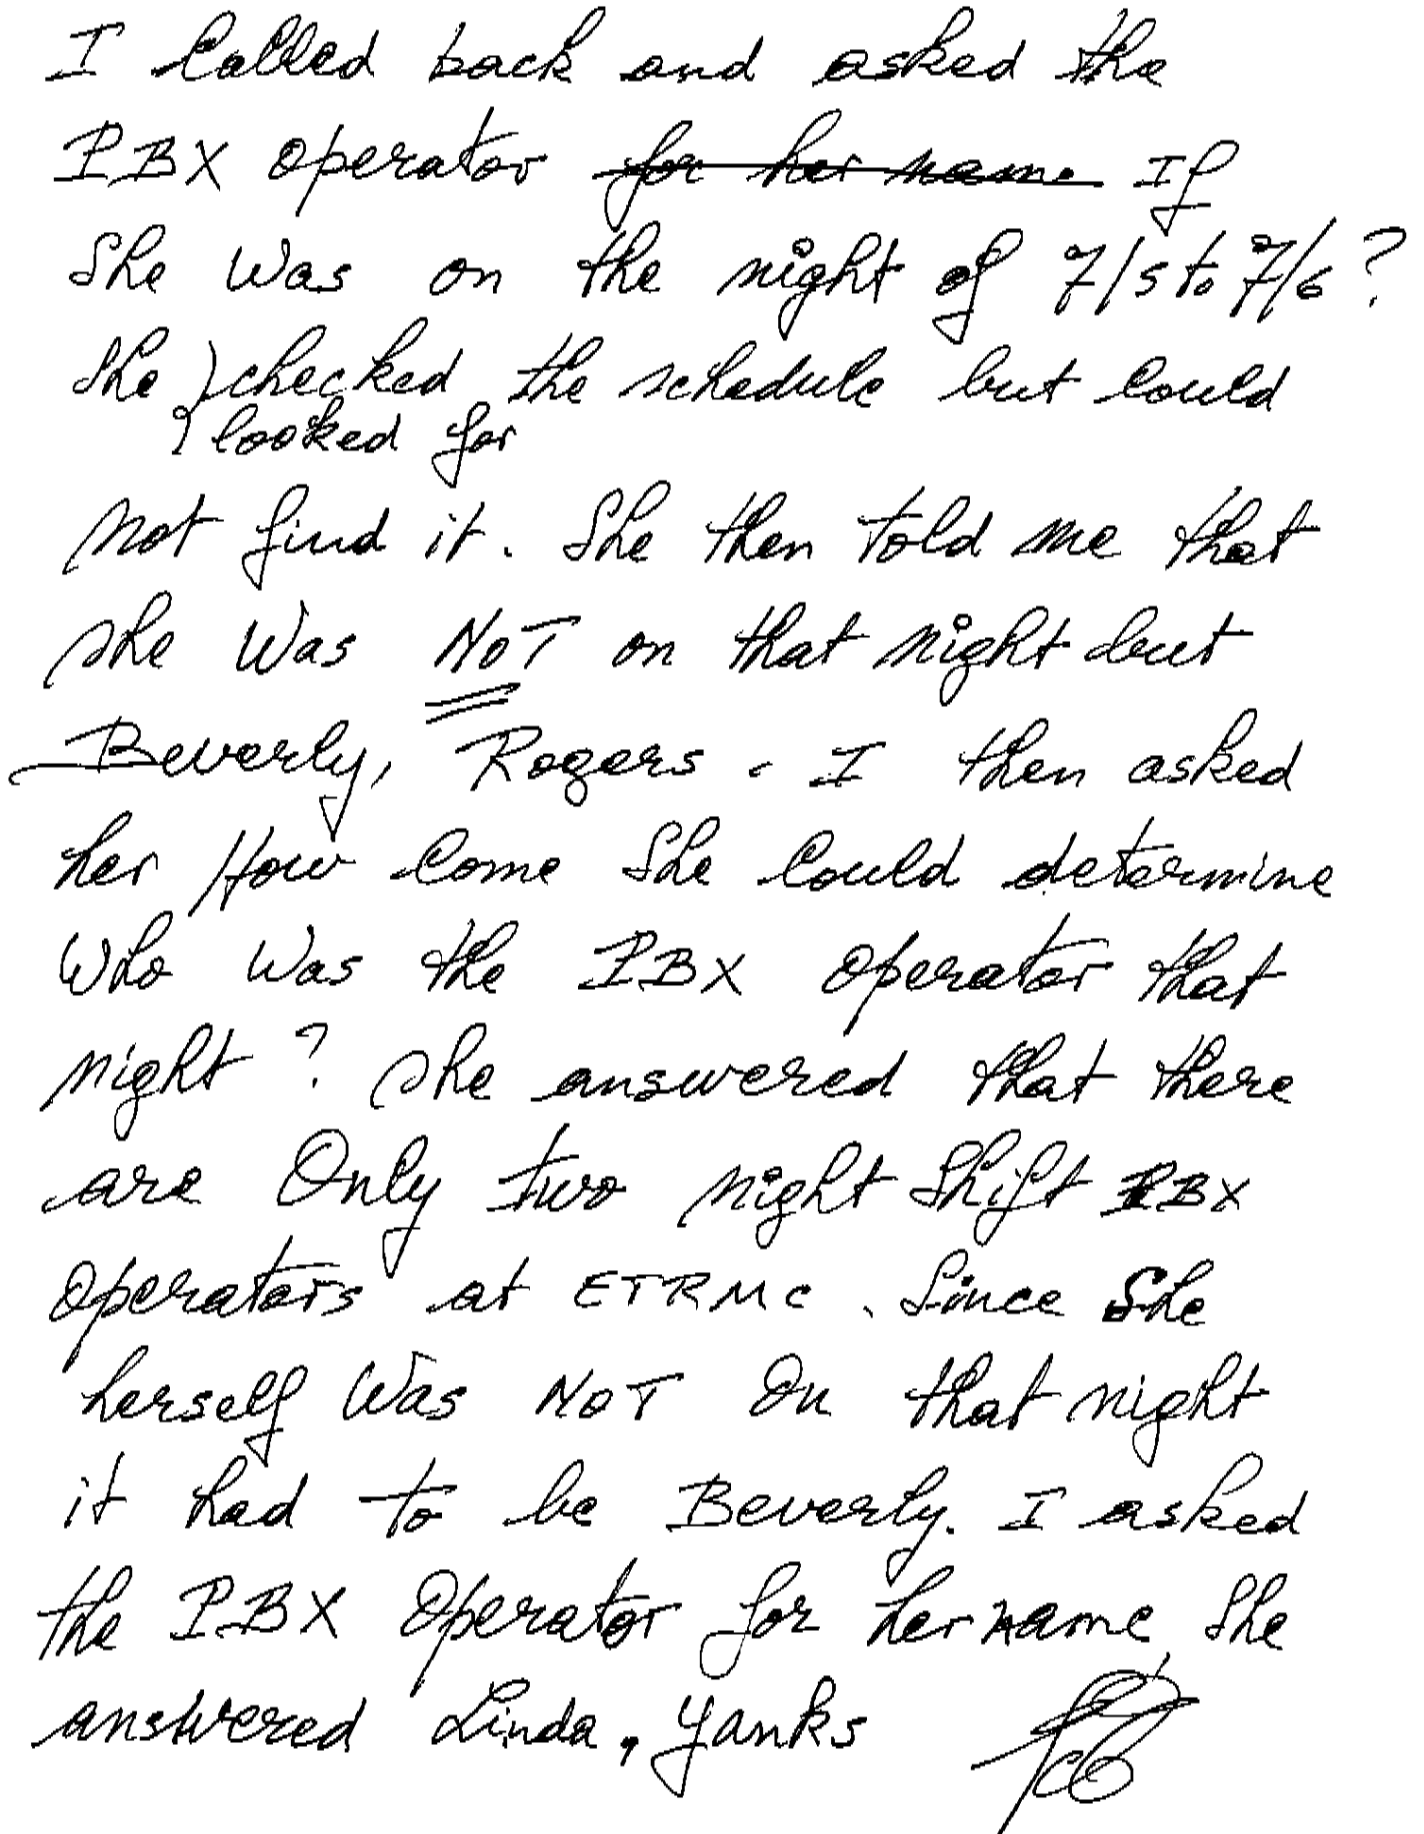 I Called back and asked the
PBX operator ~~for her name~~ If
She was on the night of 7/5 to 7/6?
She } checked the schedule but Could
{ looked for
not find it. She then told me that
she was NOT on that night but
Beverly, Rogers. I then asked
her How Come She Could determine
Who was the PBX operator that
night? she answered that there
are Only two night Shift PBX
Operators at ETRMC. Since She
herself was NOT On that night
it had to be Beverly. I asked
the PBX Operator for her name, She
answered Linda, Yanks